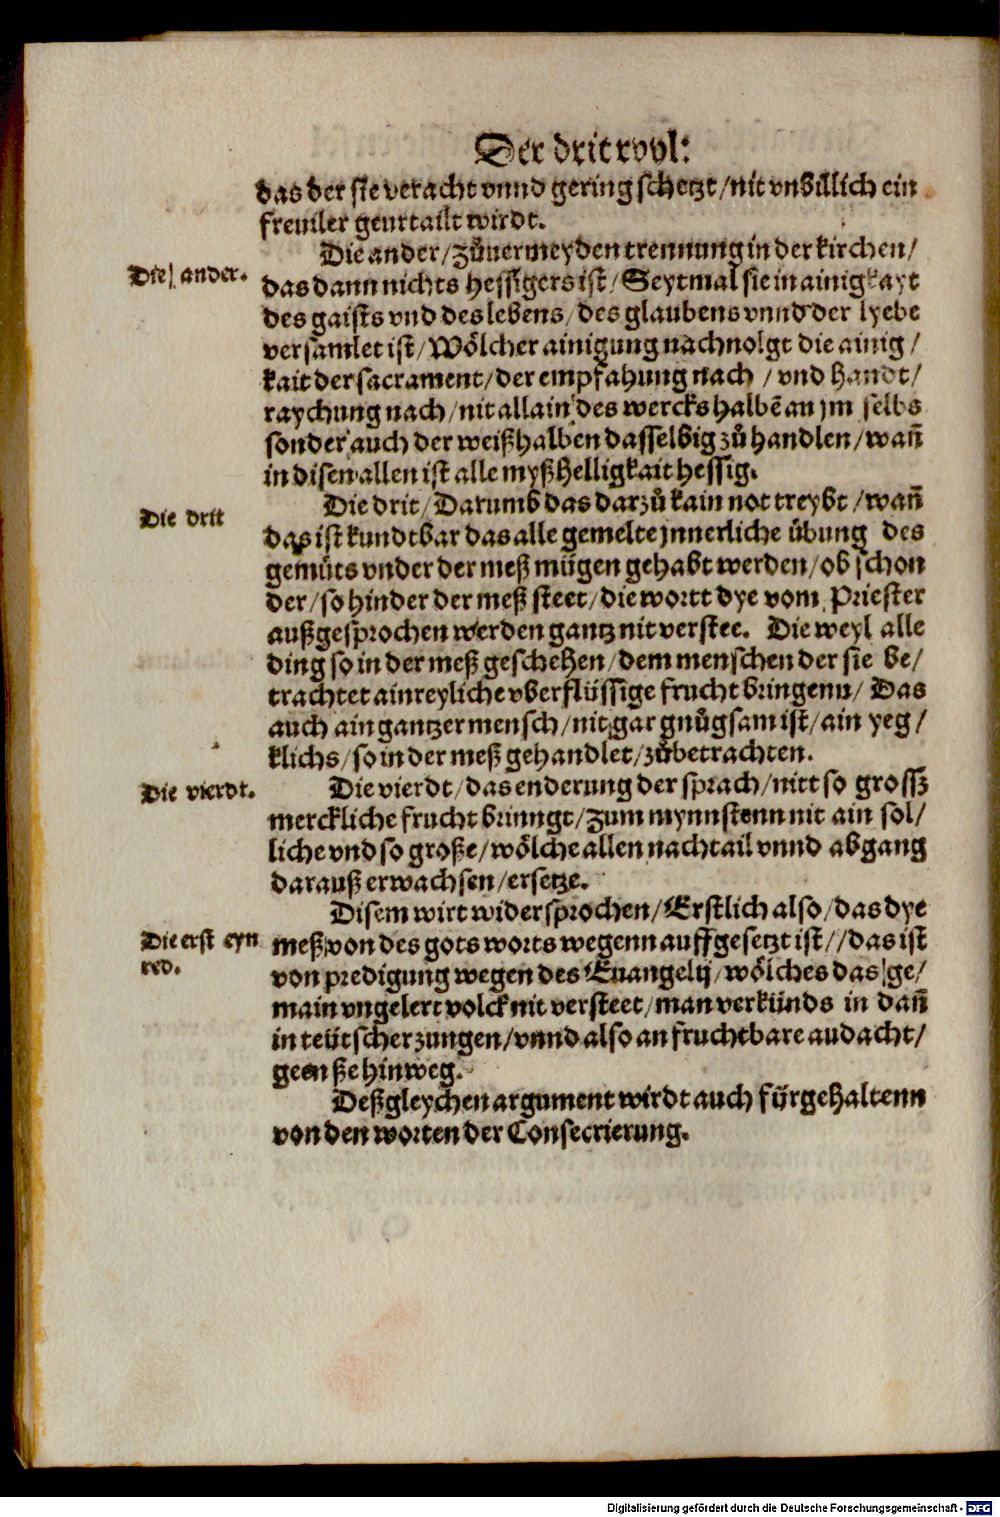 Der drit rool:
das der sie veracht vnnd gering schetzt/nit vnbillich ein
freuiler geurtailt wirdt.
Die ander.
Die ander/zůuermeyden trennung in der kirchen/
das dann nichts hessigers ist/Seytmal sie in ainigkayt
des gaists vnd des lebens/des glaubens vnnd der lyebe
versamlet ist/Wölcher ainigung nachuolgt die ainig/
kait der sacrament/der empfahung nach/vnd handt/
raychung nach/nit allain des wercks halbē an jm selbs
sonder auch der weiß halben dasselbig zů handlen/wañ
in disen allen ist alle myßhelligkait hessig.
Die drit
Die drit/Darumb das darzů kain not treybt/wañ
das ist kundtbar das alle gemelte jnnerliche übung des
gemüts vnder der meß mügen gehabt werden/ob schon
der/so hinder der meß steet/die wortt dye vom Priester
außgesprochen werden gantz nit verstee. Die weyl alle
ding so in der meß geschehen/dem menschen der sie be/
trachtet ain reyliche vberflüssige frucht bringenn/Das
auch ain gantzer mensch/nit gar gnůgsam ist/ain yeg/
klichs/so in der meß gehandlet/zůbetrachten.
Die vierdt.
Die vierdt/das enderung der sprach/nitt so grossz
merckliche frucht brinngt/zum mynnstenn nit ain sol/
liche vnd so große/wölche allen nachtail vnnd abgang
darauß erwachsen/ersetze.
Disem wirt widersprochen/Erstlich also/das dye
Die erst eyn
red.
meß von des gots worts wegenn auffgesetzt ist//das ist
von predigung wegen des Euangelij/wölches das ge/
main vngelert volck nit versteet/man verkünds in dañ
in teütscher zungen/vnnd also an fruchtbare andacht/
geen ße hinweg.
Deßgleychen argument wirdt auch fürgehaltenn
von den worten der Consecrierung.
Digitalisierung gefördert durch die Deutsche Forschungsgemeinschaft - DFG